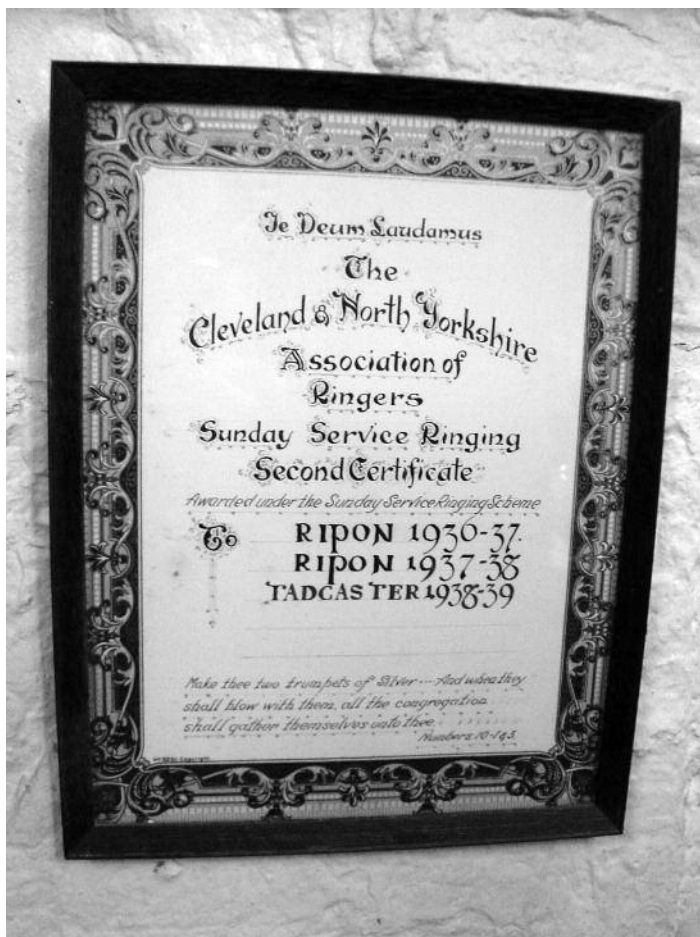 Te Deum Laudamus
The
Cleveland & North Yorkshire
Association of
Ringers
Sunday Service Ringing
Second Certificate
Awarded under the Sunday Service Ringing Scheme
To RIPON 1936-37.
RIPON 1937-38
TADCASTER 1938-39
Make thee two trumpets of Silver --- And when they
shall blow with them, all the congregation
shall gather themselves unto thee
Numbers 10-1&3.
Copyright